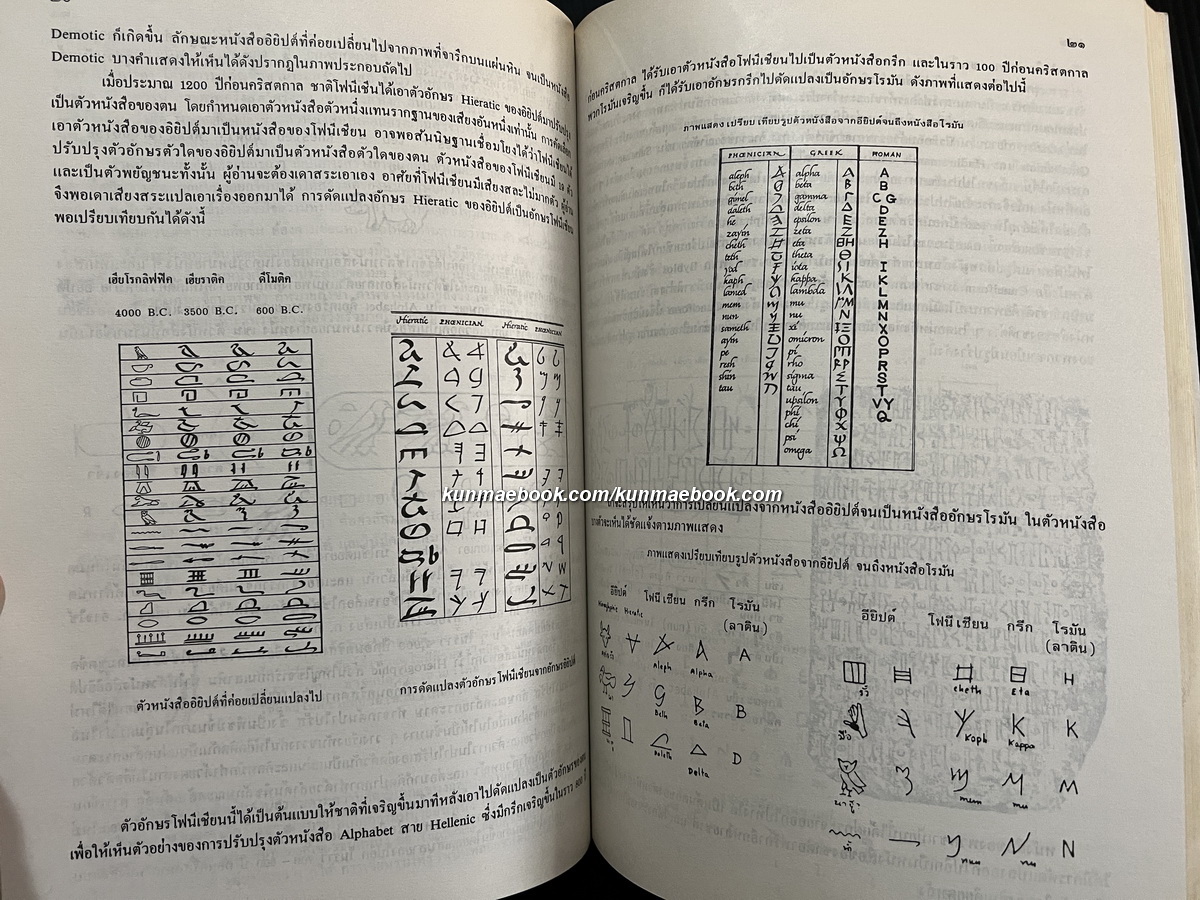 Demotic ก็เกิดขึ้น ลักษณะหนังสืออิยิปต์ที่ค่อยเปลี่ยนไปจากภาพที่จารึกบนแผ่นหิน จนเป็นหนังสือ
Demotic บางคำแสดงให้เห็นได้ดังปรากฏในภาพประกอบถัดไป
เมื่อประมาณ 1200 ปีก่อนคริสตกาล ชาติโฟนีเซียนได้เอาตัวอักษร Hieratic ของอิยิปต์มาปรับปรุง
เป็นตัวหนังสือของตน โดยกำหนดเอาตัวหนังสือตัวหนึ่งแทนรากฐานของเสียงอันหนึ่งเท่านั้น การดัดแปลง
เอาตัวหนังสือของอิยิปต์มาเป็นหนังสือของโฟนีเซียน อาจพอสันนิษฐานเชื่อมโยงได้ว่าโฟนีเซียนได้
ปรับปรุงตัวอักษรตัวใดของอิยิปต์มาเป็นตัวหนังสือตัวใดของตน ตัวหนังสือของโฟนีเซียนมี ๑๙ ตัว
และเป็นตัวพยัญชนะทั้งนั้น ผู้อ่านจะต้องเดาสระเอาเอง อาศัยที่โฟนีเซียนมีเสียงสระไม่มากตัว ผู้อ่าน
จึงพอเดาเสียงสระแปลเอาเรื่องออกมาได้ การดัดแปลงอักษร Hieratic ของอิยิปต์เป็นอักษรโฟนีเซียน
พอเปรียบเทียบกันได้ดังนี้
เฮียโรกลิฟฟิค เฮียราติค ดีโมติค
4000 B.C. 3500 B.C. 600 B.C.
Hieratic PHŒNICIAN Hieratic PHŒNICIAN
ตัวหนังสืออิยิปต์ที่ค่อยเปลี่ยนแปลงไป
การดัดแปลงตัวอักษรโฟนีเซียนจากอักษรอิยิปต์
ตัวอักษรโฟนีเซียนนี้ได้เป็นต้นแบบให้ชาติที่เจริญขึ้นมาทีหลังเอาไปดัดแปลงเป็นตัวอักษรของตน
เพื่อให้เห็นตัวอย่างของการปรับปรุงตัวหนังสือ Alphabet สาย Hellenic ซึ่งมีกรีกเจริญขึ้นในราว 800 ปี
๒๑
ก่อนคริสตกาล ได้รับเอาตัวหนังสือโฟนีเซียนไปเป็นตัวหนังสือกรีก และในราว 100 ปีก่อนคริสตกาล
พวกโรมันเจริญขึ้น ก็ได้รับเอาอักษรกรีกไปดัดแปลงเป็นอักษรโรมัน ดังภาพที่แสดงต่อไปนี้
ภาพแสดงเปรียบเทียบรูปตัวหนังสือจากอียิปต์จนถึงหนังสือโรมัน
PHŒNICIAN GREEK ROMAN
aleph alpha Α A
beth beta B B
gimel gamma Γ C G
daleth delta Δ D
he epsilon E E
zayin zeta Z Z
cheth eta H H
teth theta Θ
yod iota I I
kaph kappa K K
lamed lambda Λ L
mem mu M M
nun nu N N
sameth xi Ξ X
ayin omicron O O
pe pi Π P
resh rho P R
shin sigma Σ S
tau tau T T
upsilon Υ V Y
phi Φ Q
chi X
psi Ψ
omega Ω
kunmaebook.com/kunmaebook.com
ว่าการเปลี่ยนแปลงจากหนังสืออิยิปต์จนเป็นหนังสืออักษรโรมัน ในตัวหนังสือ
บางตัวจะเห็นได้ชัดแจ้งตามภาพแสดง
ภาพแสดงเปรียบเทียบรูปตัวหนังสือจากอียิปต์ จนถึงหนังสือโรมัน
อียิปต์ โฟนีเซียน กรีก โรมัน
Hieroglyphic Hieratic (ลาติน)
Aleph Alpha A
Beth Beta B
Daleth Delta D
อียิปต์ โฟนีเซียน กรีก โรมัน
(ลาติน)
รั้ว cheth Eta H
มือ Koph Kappa K
mem mu M
น้ำ nun nu N